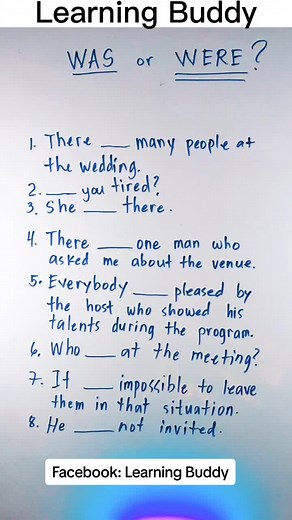 Learning Buddy
WAS or WERE?
1. There ___ many people at
the wedding.
2. ___ you tired?
3. She ___ there.
4. There ___ one man who
asked me about the venue.
5. Everybody ___ pleased by
the host who showed his
talents during the program.
6. Who ___ at the meeting?
7. It ___ impossible to leave
them in that situation.
8. He ___ not invited.
Facebook: Learning Buddy